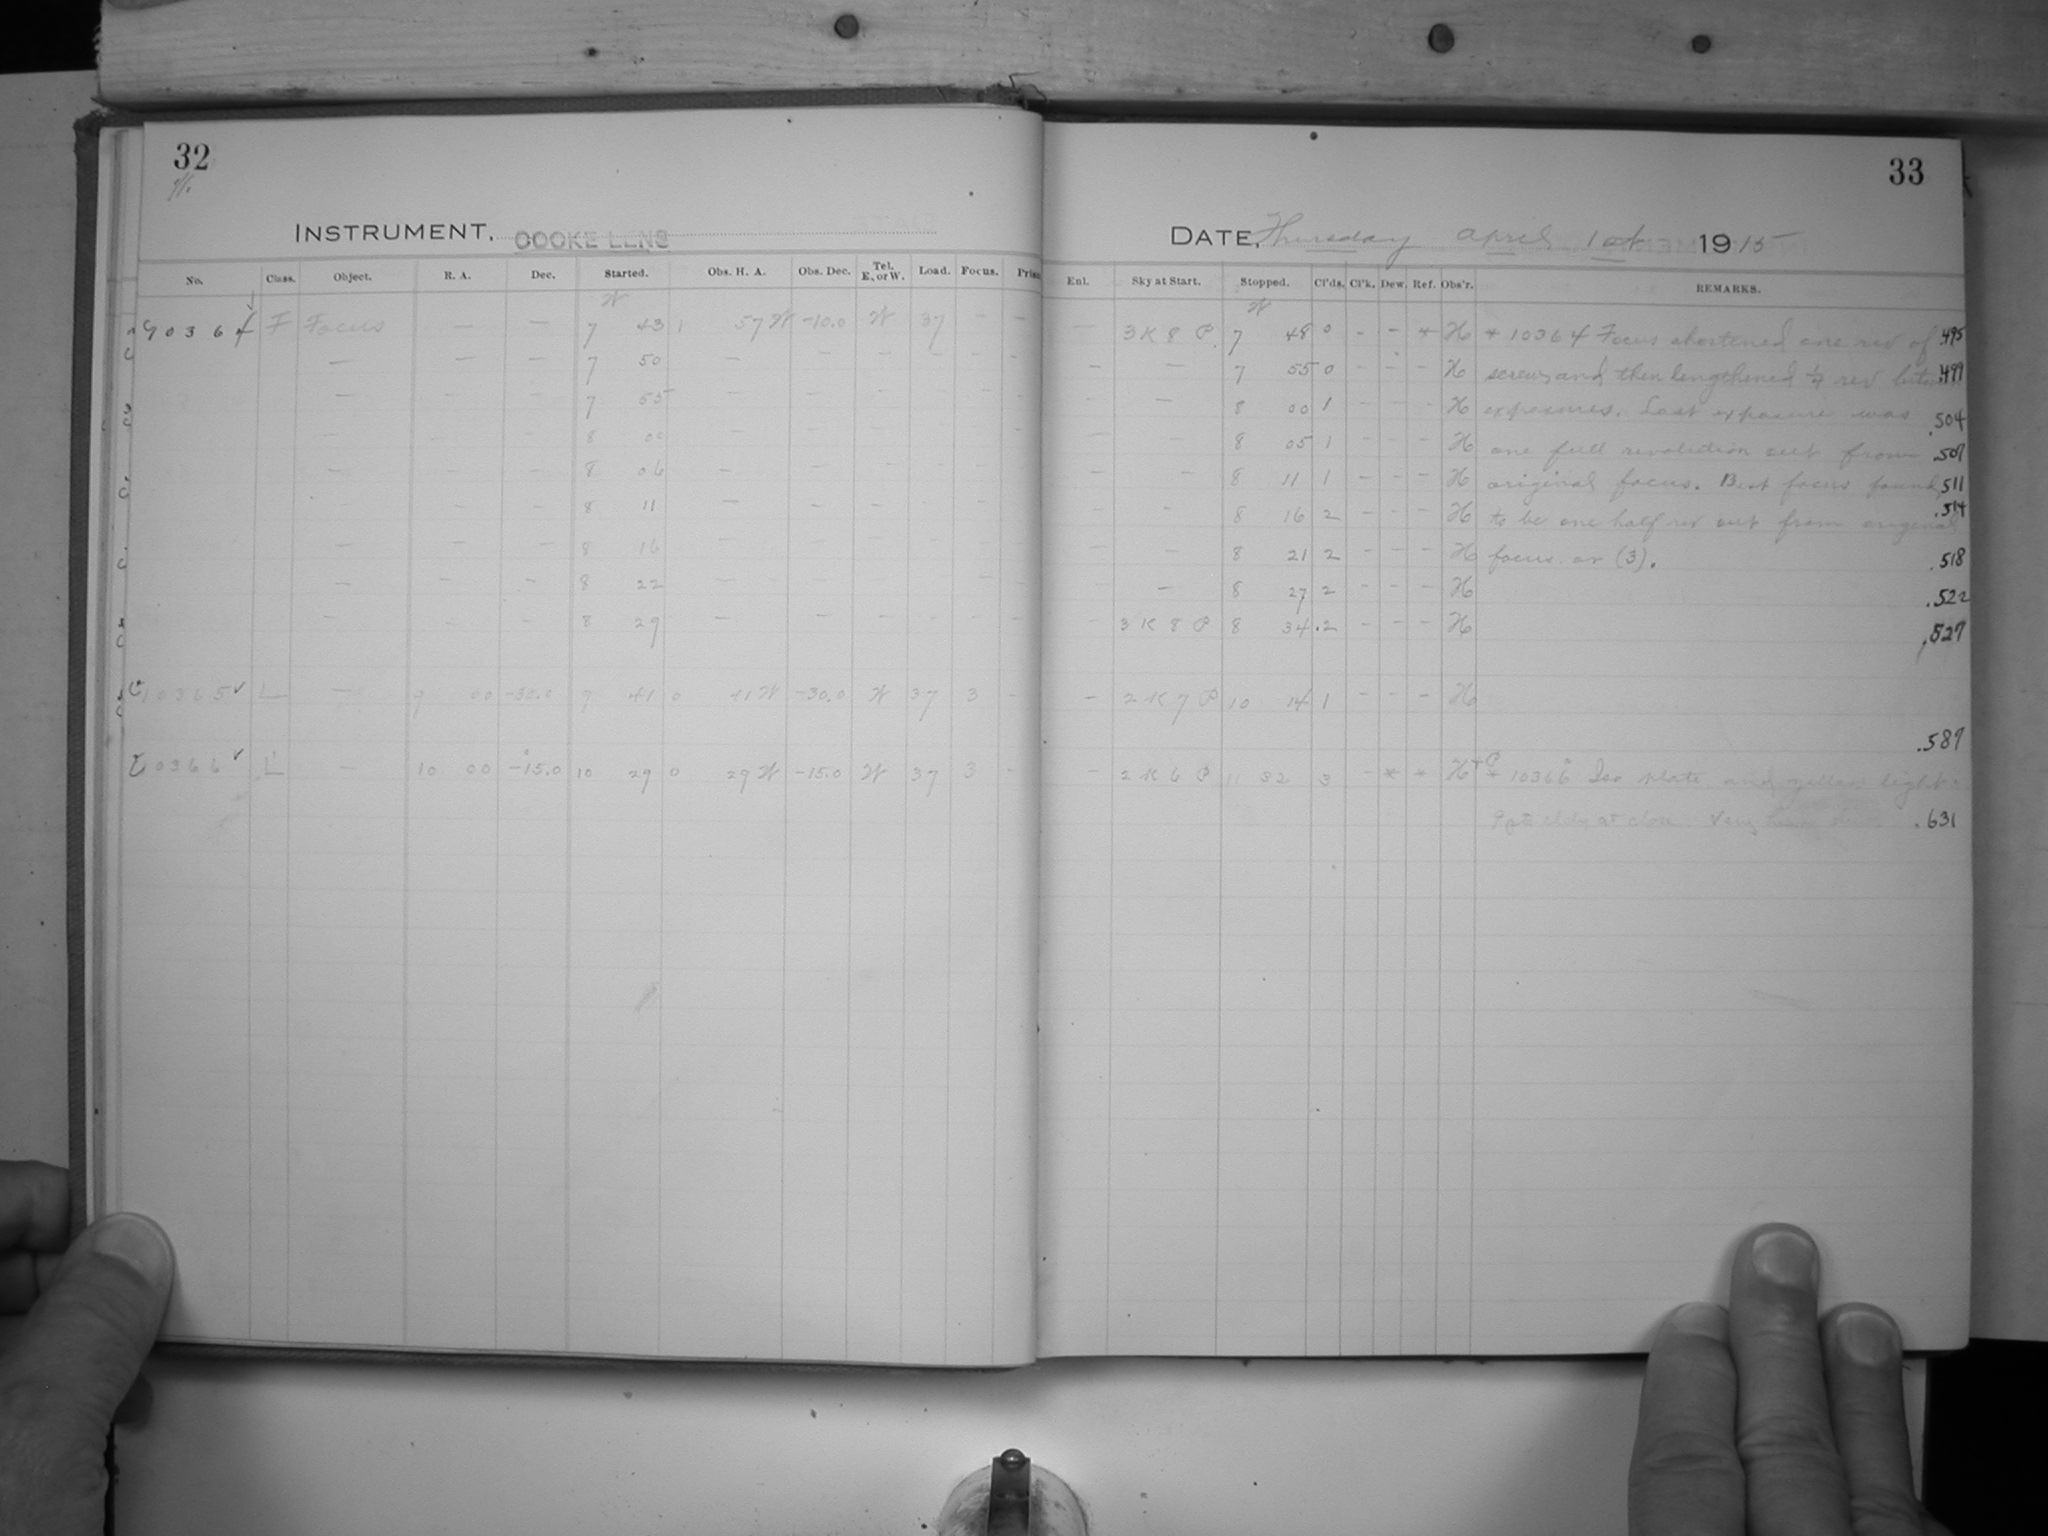 32
INSTRUMENT, COOKE LENS
No. Class. Object. R. A. Dec. Started. Obs. H. A. Obs. Dec. Tel. E. or W. Load. Focus.
W
10364 F Focus — — 7 43 1 57 W -10.0 W 37 - -
— 7 50
— 7 55
— 8 00
— 8 06
— 8 11
— 8 16
— 8 22
— 8 29
10365 ✓ L — 9 00 -30.0 9 41 0 41 W -30.0 W 37 3 -
10366 ✓ L — 10 00 -15.0 10 29 0 29 W -15.0 W 37 3 -
33
DATE, Thursday April 1st 1915
Enl. Sky at Start. Stopped. Cl'ds. Cl'k. Dew. Ref. Obs'r. REMARKS.
W
— 3 K 8 P. 7 48 0 - - * H * 10364 Focus shortened one rev of .495
— — 7 55 0 - - - H screws and then lengthened 1/4 rev .499
— 8 00 1 - - - H exposures. Last exposure was .504
— — 8 05 1 - - - H one full revolution out from .507
— — 8 11 1 - - - H original focus. Best focus found .511
— — 8 16 2 - - - H to be one half rev out from original .514
— — 8 21 2 - - - H focus or (3). .518
— 8 27 2 - - - H .522
— 3 K 8 P 8 34 .2 - - - H .527
— 2 K 7 P 10 14 1 - - - H
.587
— 2 K 6 P 11 32 3 - * * H+P * 10366 Iso plate and yellow light
at close. Very .631